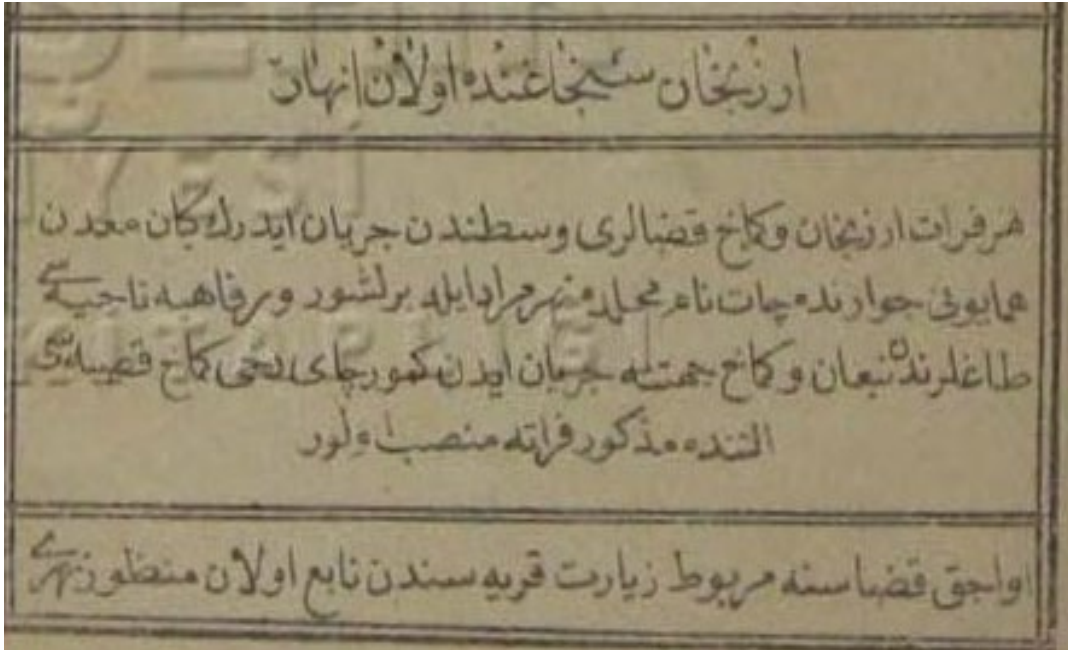 ارزنجان سنجاغنده اولان انهار
نهر فرات ارزنجان و كماخ قضالری وسطندن جریان ایدرك كبان معدن
همایونی جوارنده چات نام محلده نهر مراد ایله برلشور و رفاهیه ناحیه سی
طاغلرندن نبعان و كماخ جهتله جریان ایدن كمور چای دخی كماخ قصبه سی
التنده مذكور فراته منصب اولور
اواجق قضاسنه مربوط زیارت قریه سندن نابع اولان منظور نهری